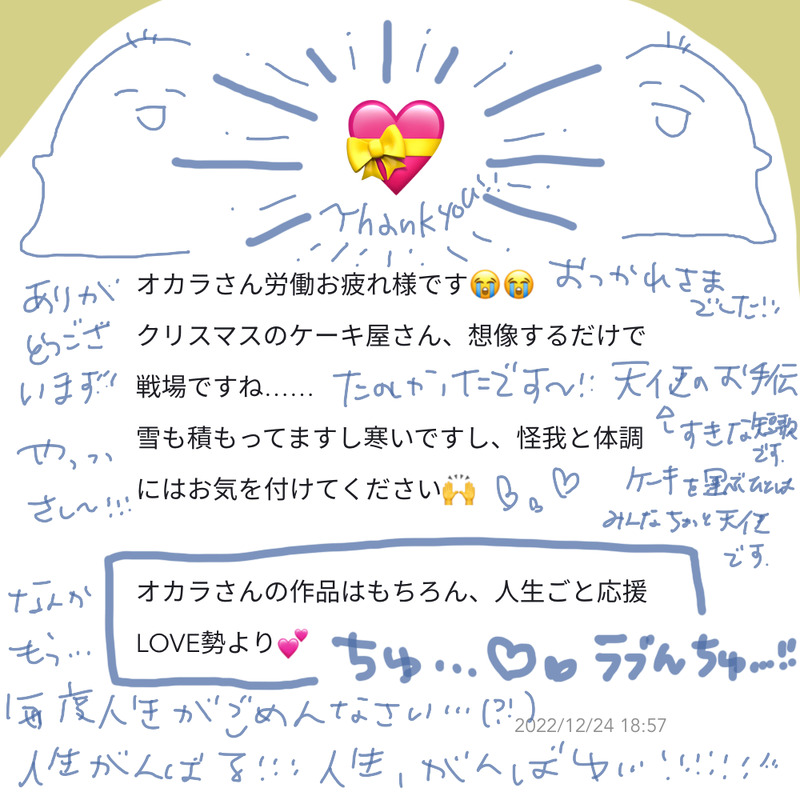 Thankyou!!
ありが
とうござ
います!!
オカラさん労働お疲れ様です😭😭
おつかれさま
でした!!
クリスマスのケーキ屋さん、想像するだけで
戦場ですね……
たのしかったです〜!!
天使のお手伝
すきな短歌
です.
雪も積もってますし寒いですし、怪我と体調
にはお気を付けてください🙌
やっっ
さし〜!!!
ケーキを運ぶひとは
みんなちょっと天使
です.
オカラさんの作品はもちろん、人生ごと応援
LOVE勢より💕
なんか
もぅ…
ちゅ…♡
ラブんちゅ…!!
毎度人生がごめんなさい…(?!)
2022/12/24 18:57
人生がんばる!!!
人生,がんばゆ…!!!!!!